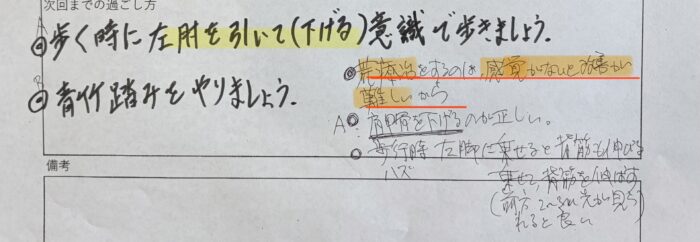 次回までの過ごし方
A
◎歩く時に左肘を引いて(下げる)意識で歩きましょう.
B
◎青竹踏みをやりましょう.
◎荒療治をするのは,感覚がないと改善が
難しいから
A◎肩甲骨を下げるのが正しい。
◎歩行時 左脚に乗せると背筋も伸びる
ハズ
乗せて、背筋を伸ばす
(前方2~3m先が見ら
れると良い
備考